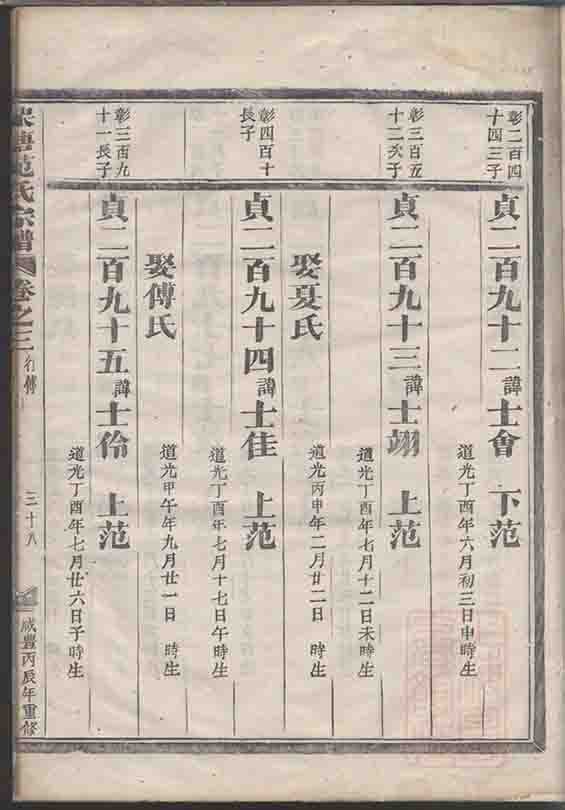 彰二百四
十四三子
貞二百九十二諱士會 下范
道光丁酉年六月初三日申時生
彰三百五
十二次子
貞二百九十三諱士翊 上范
道光丁酉年七月十二日未時生
娶夏氏
道光丙申年二月廿二日 時生
彰四百十
長子
貞二百九十四諱士佳 上范
道光丁酉年七月十七日午時生
娶傅氏
道光甲午年九月廿一日 時生
彰三百九
十一長子
貞二百九十五諱士伶 上范
道光丁酉年七月廿六日子時生
范氏宗譜 卷之三 行傳 三十八 咸豐丙辰年重修